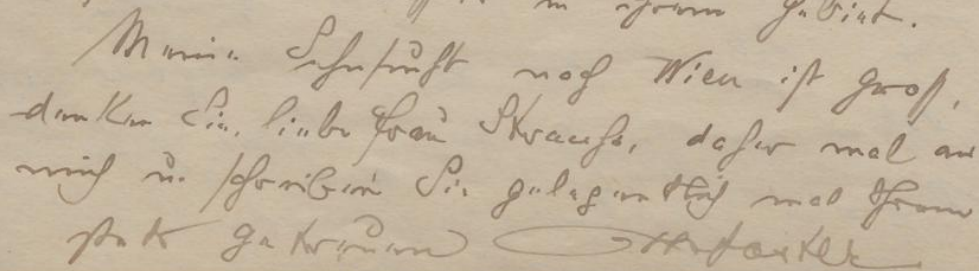 in ihrem Gebiet.
Meine Sehnsucht nach Wien ist groß,
denken Sie, liebe Frau Strauss, daher mal an
mich u. schreiben Sie gelegentlich mal Ihrem
stets getreuen